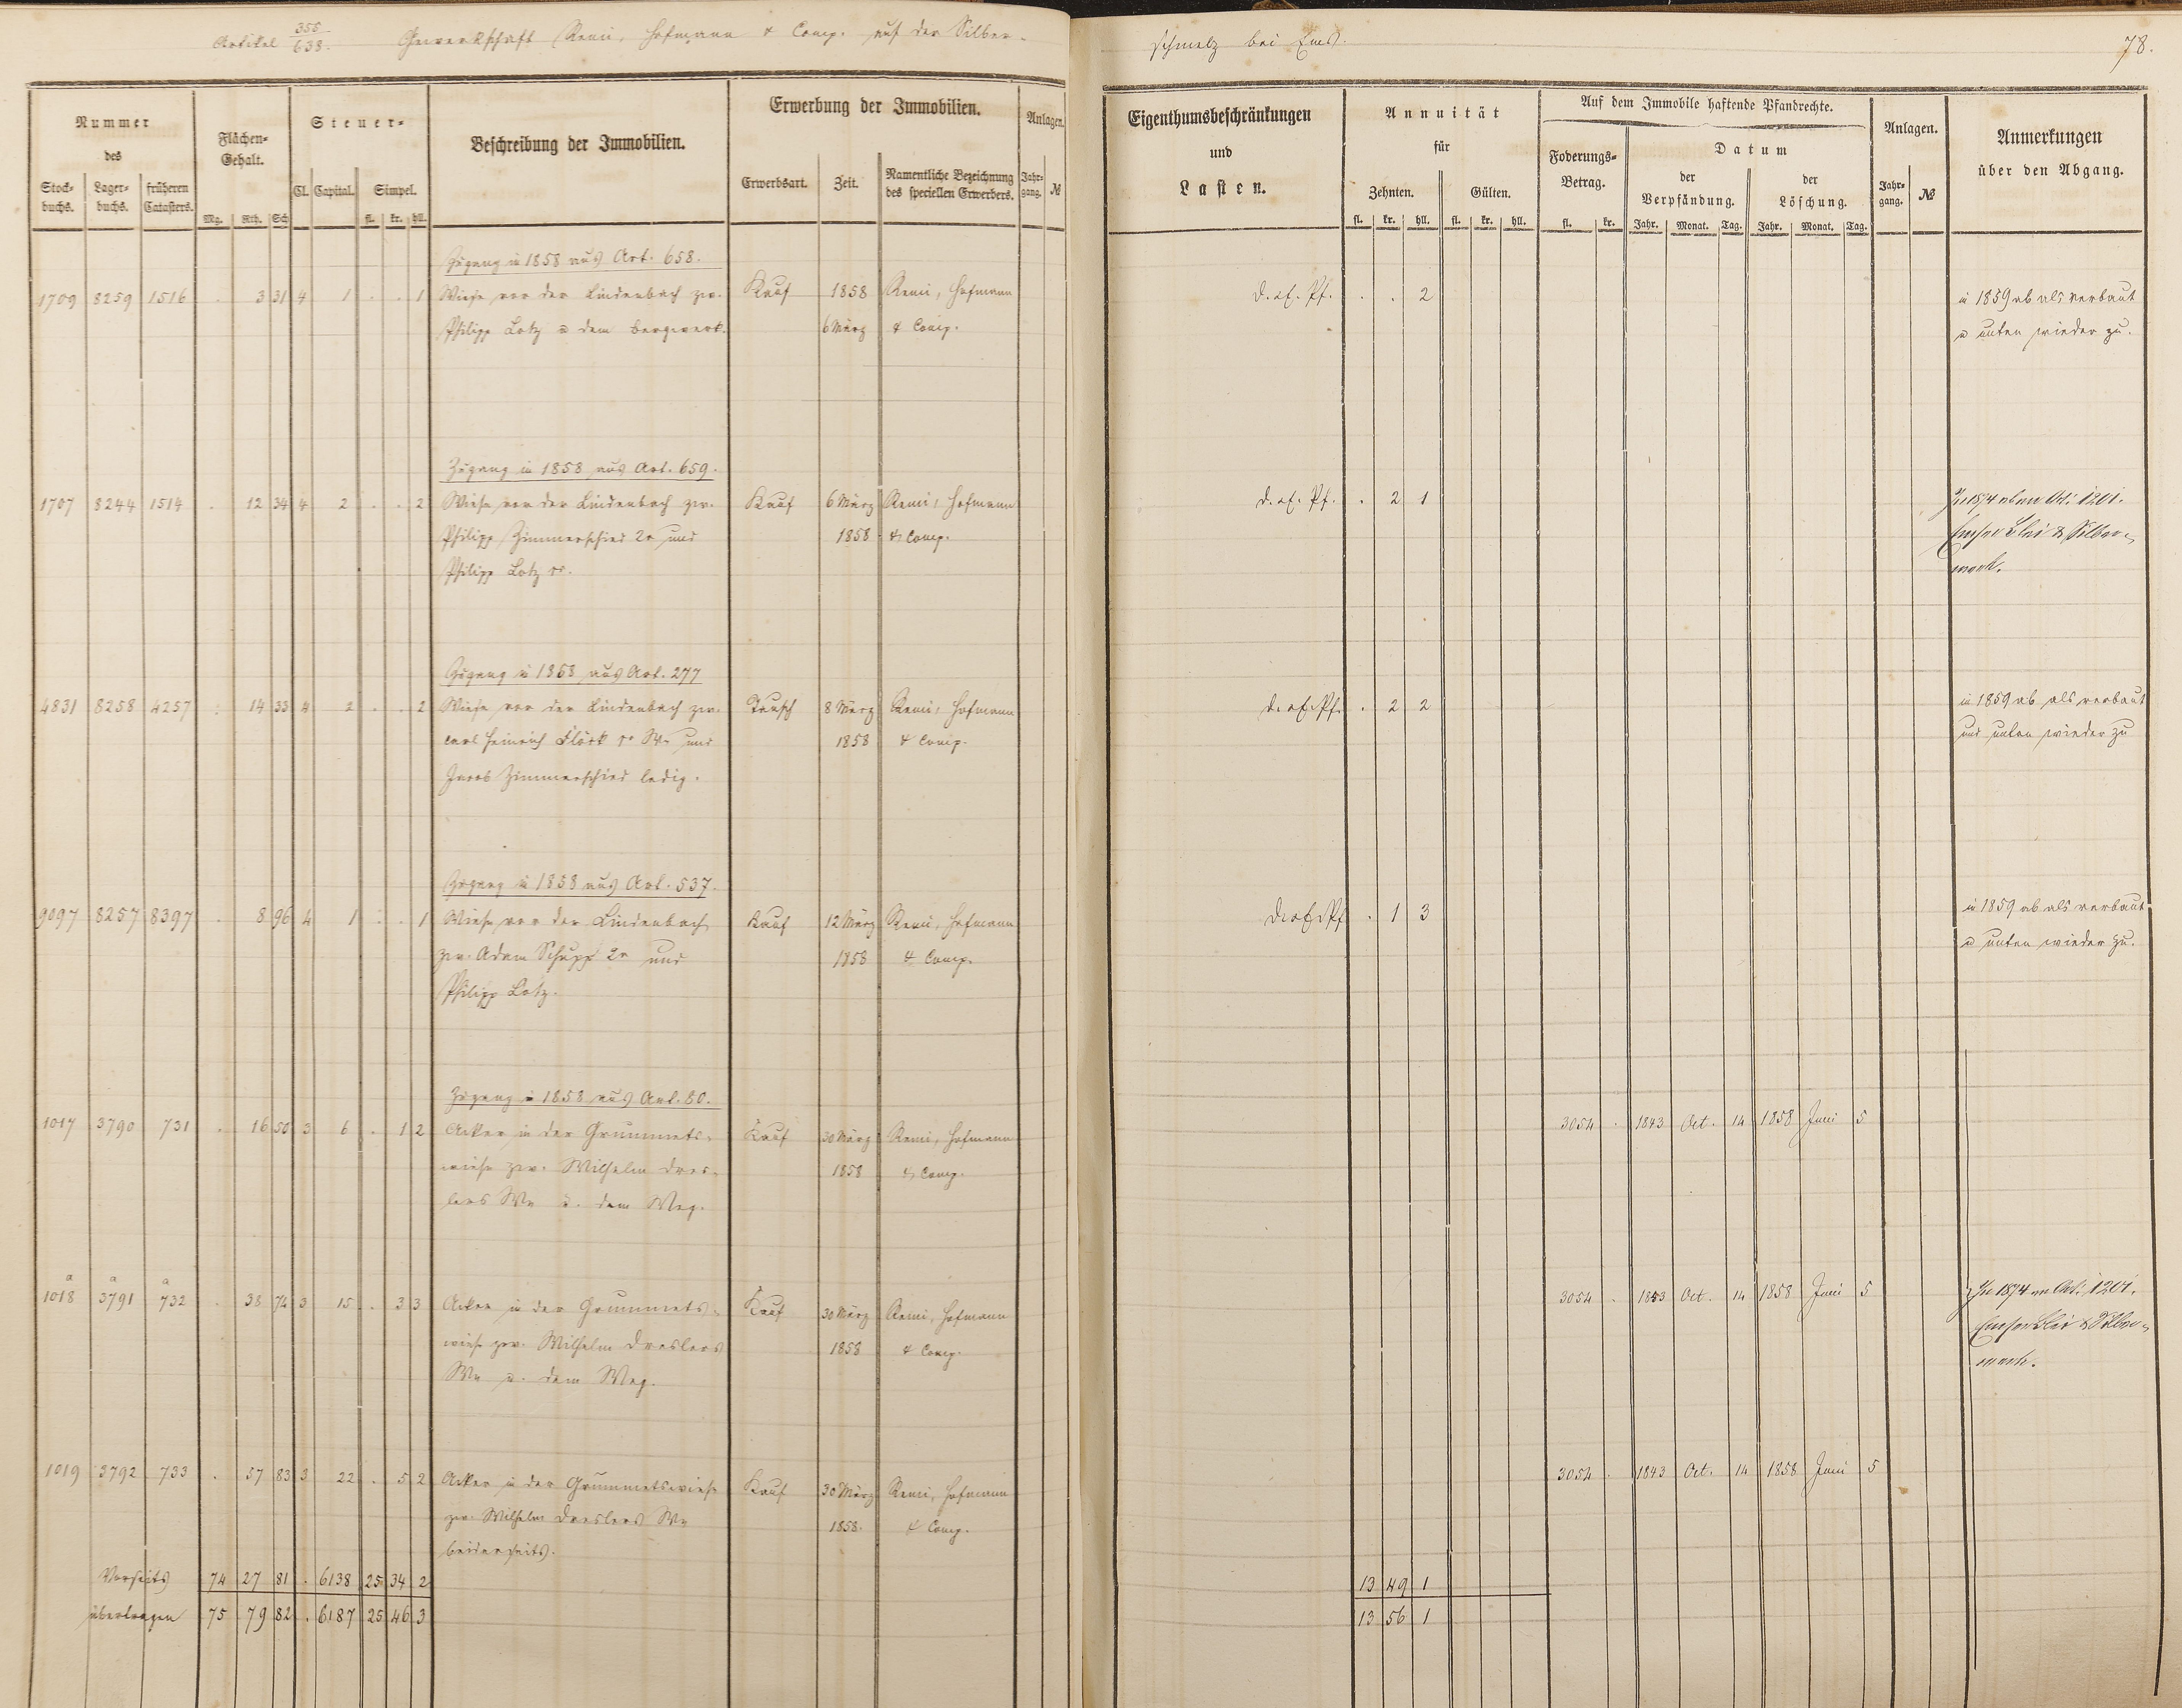 Artikel 355/638. Gewerkschaft Remi, Hofmann & Comp. auf der Silber-
schmelz bei Ems. 78.
Nummer des
Stock-buchs. Lager-buchs. früheren Catasters.
Flächen-Gehalt.
Mg. Rth. Sch
Steuer-
Cl. Capital. Simpel.
fl. kr. hll.
Beschreibung der Immobilien.
Erwerbung der Immobilien.
Erwerbsart. Zeit. Namentliche Bezeichnung des speciellen Erwerbers.
Anlagen.
Jahr-gang. №
Eigenthumsbeschränkungen
und
Lasten.
Annuität
für
Zehnten. Gülten.
fl. kr. hll. fl. kr. hll.
Auf dem Immobile haftende Pfandrechte.
Foderungs-Betrag.
fl. kr.
Datum
der Verpfändung. der Löschung.
Jahr. Monat. Tag. Jahr. Monat. Tag.
Anlagen.
Jahr-gang. №
Anmerkungen
über den Abgang.
Zugang in 1858 aus Art. 658.
1709 8259 1516 . 3 31 4 1 . . 1 Wiese vor der Lindenbach zw. Kauf 1858 Remi, Hofmann d. ef. Pf. . . 2 in 1859 ab als verbaut
Philipp Lotz u dem Bergwerk. 6 März & Comp. u unten wieder zu.
Zugang in 1858 aus Art. 659.
1707 8244 1514 . 12 34 4 2 . . 2 Wiese vor der Lindenbach zw. Kauf 6 März Remi, Hofmann d. ef. Pf. . 2 1 In 1874 ab an Art. 1201.
Philipp Zimmerschied 2r und 1858 & Comp. Emser Blei & Silber-
Philipp Lotz werk.
Zugang in 1858 aus Art. 277
4831 8258 4257 . 14 33 4 2 . . 2 Wiese vor der Lindenbach zw. Tausch 8 März Remi, Hofmann d. ef. Pf. . 2 2 in 1859 ab als verbaut
Carl Heinrich Flöck und 1858 & Comp. und unten wieder zu
Jacob Zimmerschied ledig.
Zugang in 1858 aus Art. 537.
9097 8257 8397 . 8 96 4 1 . . 1 Wiese vor der Lindenbach Kauf 12 März Remi, Hofmann d. ef. Pf . 1 3 in 1859 ab als verbaut
zw. Adam Schupp 2r und 1858 & Comp. u unten wieder zu.
Philipp Lotz.
Zugang in 1858 aus Art. 80.
1017 3790 731 . 16 50 3 6 . 1 2 Acker in der Grummets- Kauf 30 März Remi, Hofmann 3054 . 1843 Oct. 14 1858 Juni 5
wiese zw. Wilhelm Dres- 1858 & Comp.
lers We u. dem Weg.
a a a
1018 3791 732 . 38 74 3 15 . 3 3 Acker in der Grummets- Kauf 30 März Remi, Hofmann 3054 . 1843 Oct. 14 1858 Juni 5 In 1874 an Art. 1201.
wiese zw. Wilhelm Dreslers 1858 & Comp. Emser Blei & Silber-
We u. dem Weg. werk.
1019 3792 733 . 57 83 3 22 . 5 2 Acker in der Grummetswiese Kauf 30 März Remi, Hofmann 3054 . 1843 Oct. 14 1858 Juni 5
zw. Wilhelm Dreslers We 1858. & Comp.
beiderseits.
Vorseits 74 27 81 . 6138 25 34 2 13 49 1
übertragen 75 79 82 . 6187 25 46 3 13 56 1